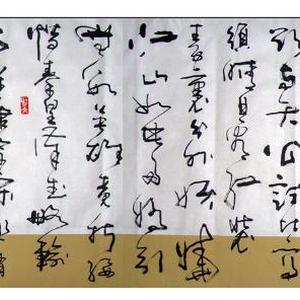 欲与天公试比高
须晴日看红装
素裹分外妖娆
江山如此多娇引
无数英雄竞折腰
惜秦皇汉武略输
文采唐宗宋祖稍